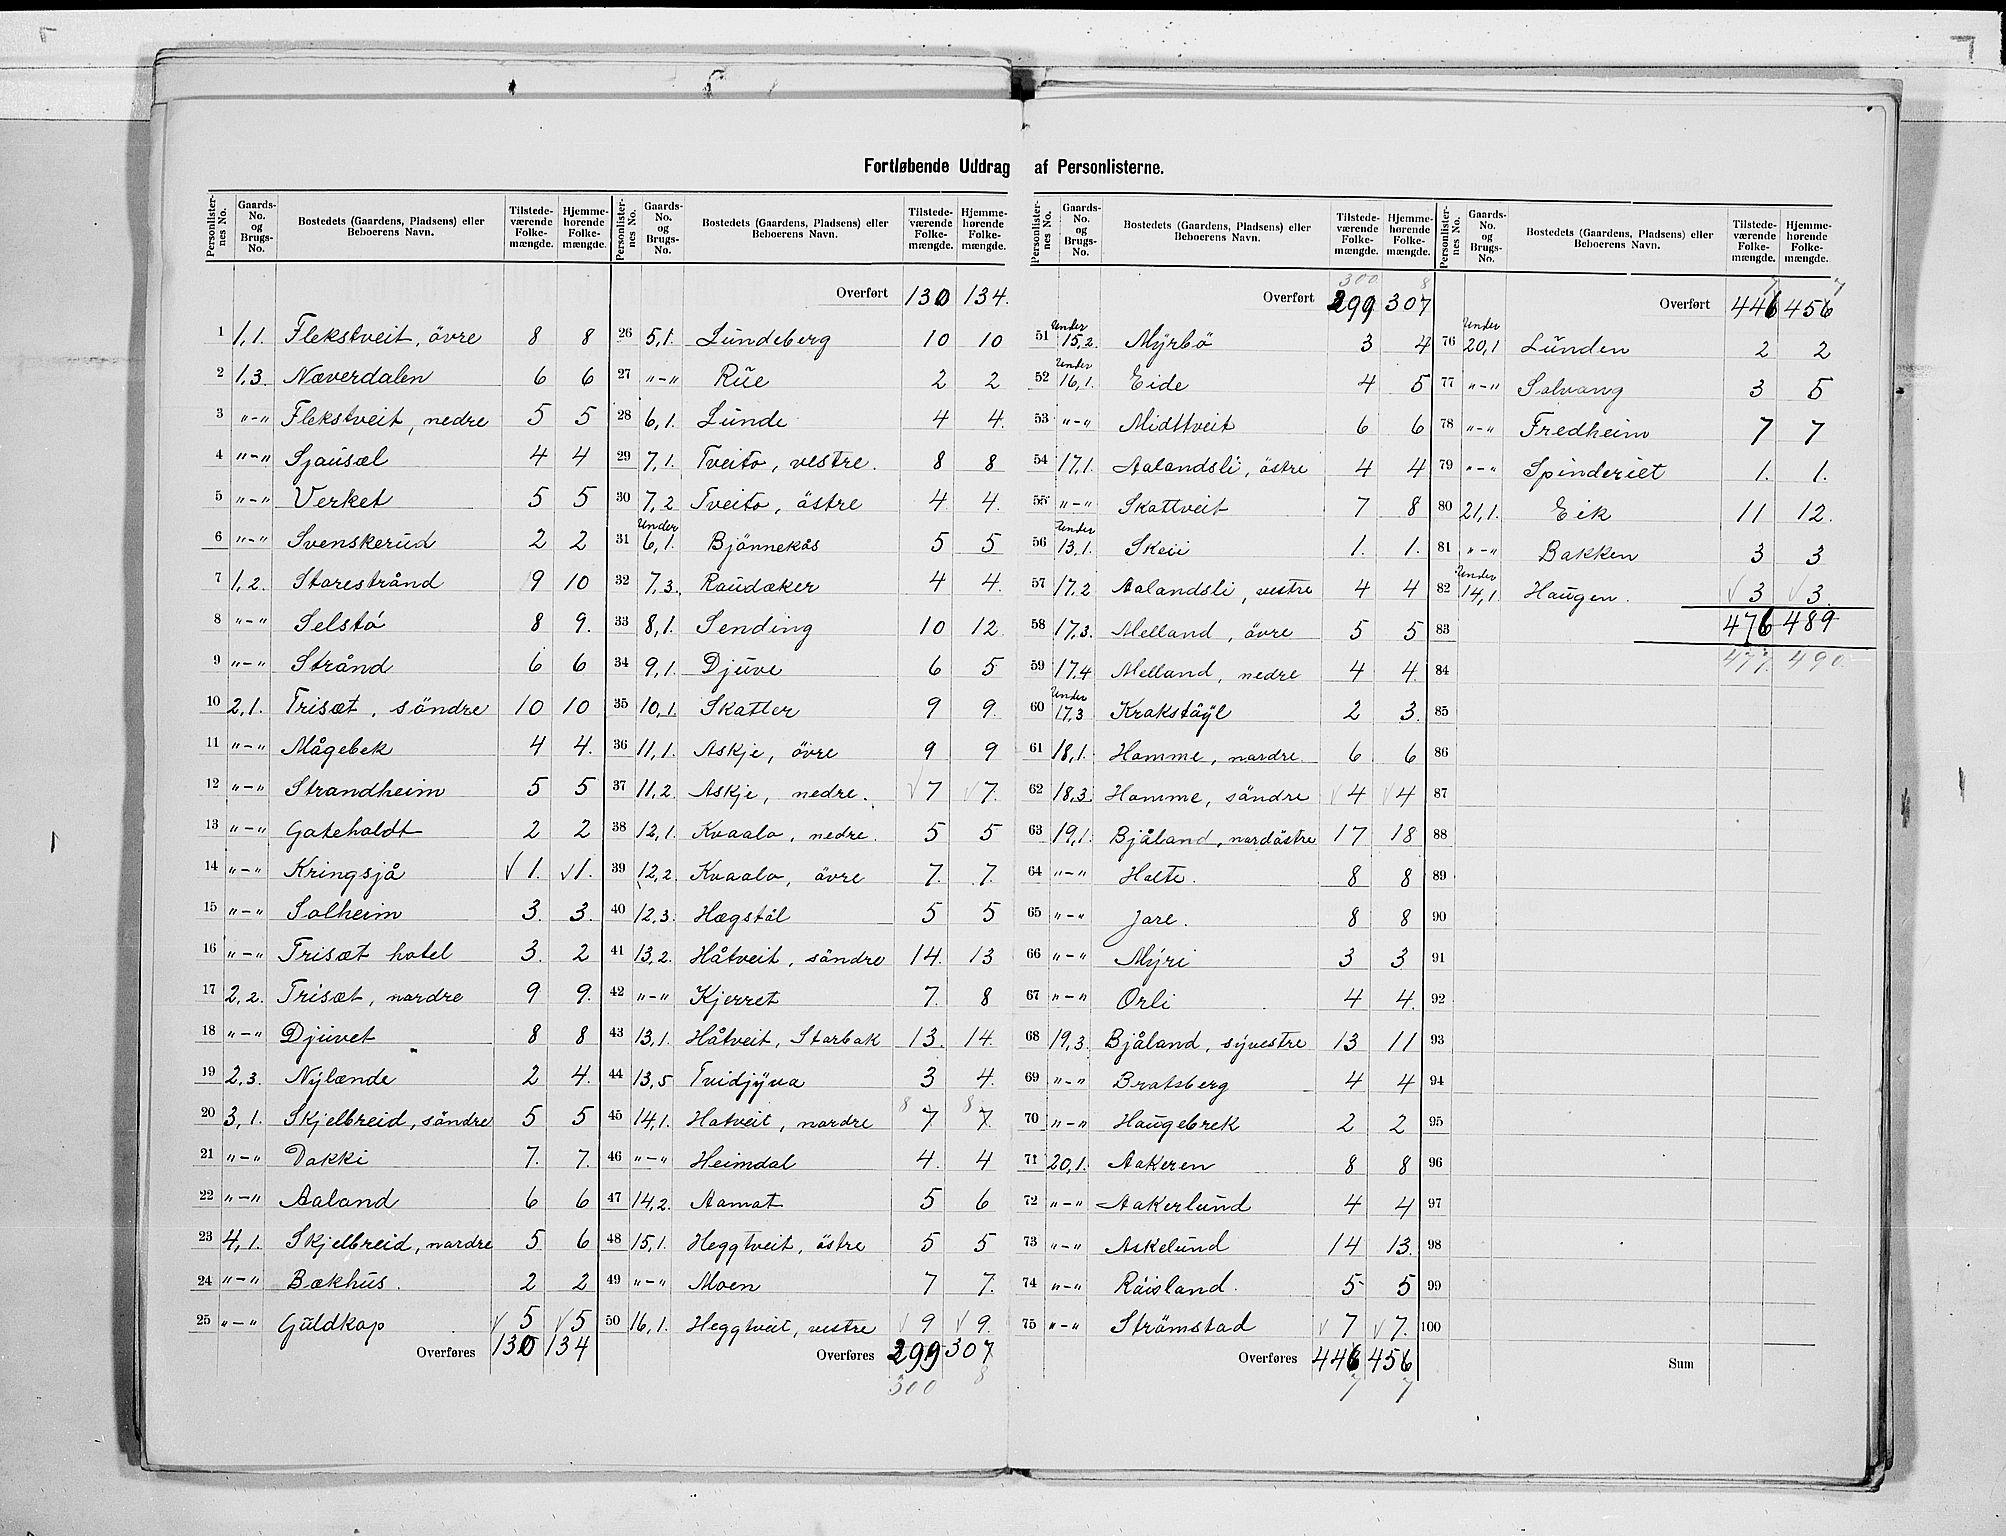 Fortløbende Uddrag af Personlisterne.
Personlisternes No. Gaards-No. og Brugs-No. Bostedets (Gaardens, Pladsens) eller Beboerens Navn. Tilstedeværende Folkemængde. Hjemmehørende Folkemængde.
1 1,1. Flekstveit, övre 8 8
2 1,3. Næverdalen 6 6
3 "–" Flekstveit, nedre 5 5
4 "–" Sjausæl 4 4
5 "–" Verket 5 5
6 "–" Svenskerud 2 2
7 1,2. Storestrånd 9 10
8 "–" Selstö 8 9.
9 "–" Strånd 6 6
10 2,1. Trisæt, söndre 10 10
11 "–" Mågebek 4 4.
12 "–" Strandheim 5 5
13 "–" Gateholdt 2 2
14 "–" Kringsjå √ 1. √ 1.
15 "–" Solheim 3. 3.
16 "–" Trisæt hotel 3. 2
17 2,2. Trisæt, nordre 9 9.
18 "–" Djuvet 8 8
19 2,3. Nylænde 2 4.
20 3,1. Skjelbreid, söndre 5 5
21 "–" Dokki 7. 7.
22 "–" Aaland 6 6
23 4,1. Skjelbreid, nordre 5 6
24 "–" Bækhus. 2 2
25 "–" Guldkop √ 5 √ 5
Overføres 130 134
Personlisternes No. Gaards-No. og Brugs-No. Bostedets (Gaardens, Pladsens) eller Beboerens Navn. Tilstedeværende Folkemængde. Hjemmehørende Folkemængde.
Overført 130 134.
26 5,1. Lundeberg 10 10
27 "–" Rue 2 2
28 6,1. Lunde 4 4.
29 7,1. Tveito, vestre. 8 8
30 7,2 Tveito, östre 4 4.
31 Under 6,1. Bjönnekås 5 5
32 7,3. Raudaker 4 4.
33 8,1. Sending 10 12.
34 9,1. Djuve 6 5
35 10,1. Skatter 9 9.
36 11,1. Askje, övre 9 9
37 11,2. Askje, nedre. √ 7 √ 7.
38 12,1. Kvaalo, nedre. 5 5
39 12,2. Kvaalo, övre 7. 7.
40 12,3. Hægstöl 5 5
41 13,2. Håtveit, söndre 14. 13
42 "–" Kjerret 7. 8
43 13,1. Håtveit, Storbak 13. 14.
44 13,5 Tvidjyva 3 4.
45 14,1. Hatveit, nordre 8 7 8 7.
46 "–" Heimdal 4. 4
47 14,2. Aamot 5 6
48 15,1. Heggtveit, östre 5 5
49 "–" Moen 7 7.
50 16,1. Heggtveit, vestre √ 9 √ 9.
Overføres 299 307
300 8
Personlisternes No. Gaards-No. og Brugs-No. Bostedets (Gaardens, Pladsens) eller Beboerens Navn. Tilstedeværende Folkemængde. Hjemmehørende Folkemængde.
300 8
Overført 299 307
51 Under 15,2. Myrbö 3 4
52 Under 16,1. Eide 4 5
53 "–" Midttveit 6 6
54 17,1. Aalandsli, östre 4 4
55 "–" Skottveit 7 8
56 Under 13,1. 1. 1.
57 17,2 Aalandsli, vestre 4 4
58 17,3. Melland, övre 5 5
59 17,4 Melland, nedre 4 4.
60 Under 17,3 2 3.
61 18,1. Homme, nordre. 6 6
62 18,3. Homme, söndre √ 4 √ 4
63 19,1. Bjåland, nordöstre 17 18
64 "–" Holte. 8 8
65 "–" Jore. 8 8
66 "–" Myri 3 3.
67 "–" Orli 4 4.
68 19,3. Bjåland, syvestre 13 11
69 "–" Bratsberg 4 4
70 "–" Haugebrek 2 2
71 20,1. Aakeren 8 8
72 "–" Aakerlund 4 4
73 "–" Askelund 14 13.
74 "–" Röisland. 5 5
75 "–" Strömstad √ 7 √ 7.
Overføres 446 456
7 7
Personlisternes No. Gaards-No. og Brugs-No. Bostedets (Gaardens, Pladsens) eller Beboerens Navn. Tilstedeværende Folkemængde. Hjemmehørende Folkemængde.
7 7
Overført 446 456
76 Under 20,1 Lunden 2 2
77 "–" Solvang 3 5
78 "–" Fredheim 7 7
79 "–" Spinderiet 1. 1.
80 21,1. Eik 11 12.
81 "–" Bakken 3 3
82 Under 14,1. Haugen. √ 3 √ 3.
83 476 489
477. 490.
84
85
86
87
88
89
90
91
92
93
94
95
96
97
98
99
100
Sum